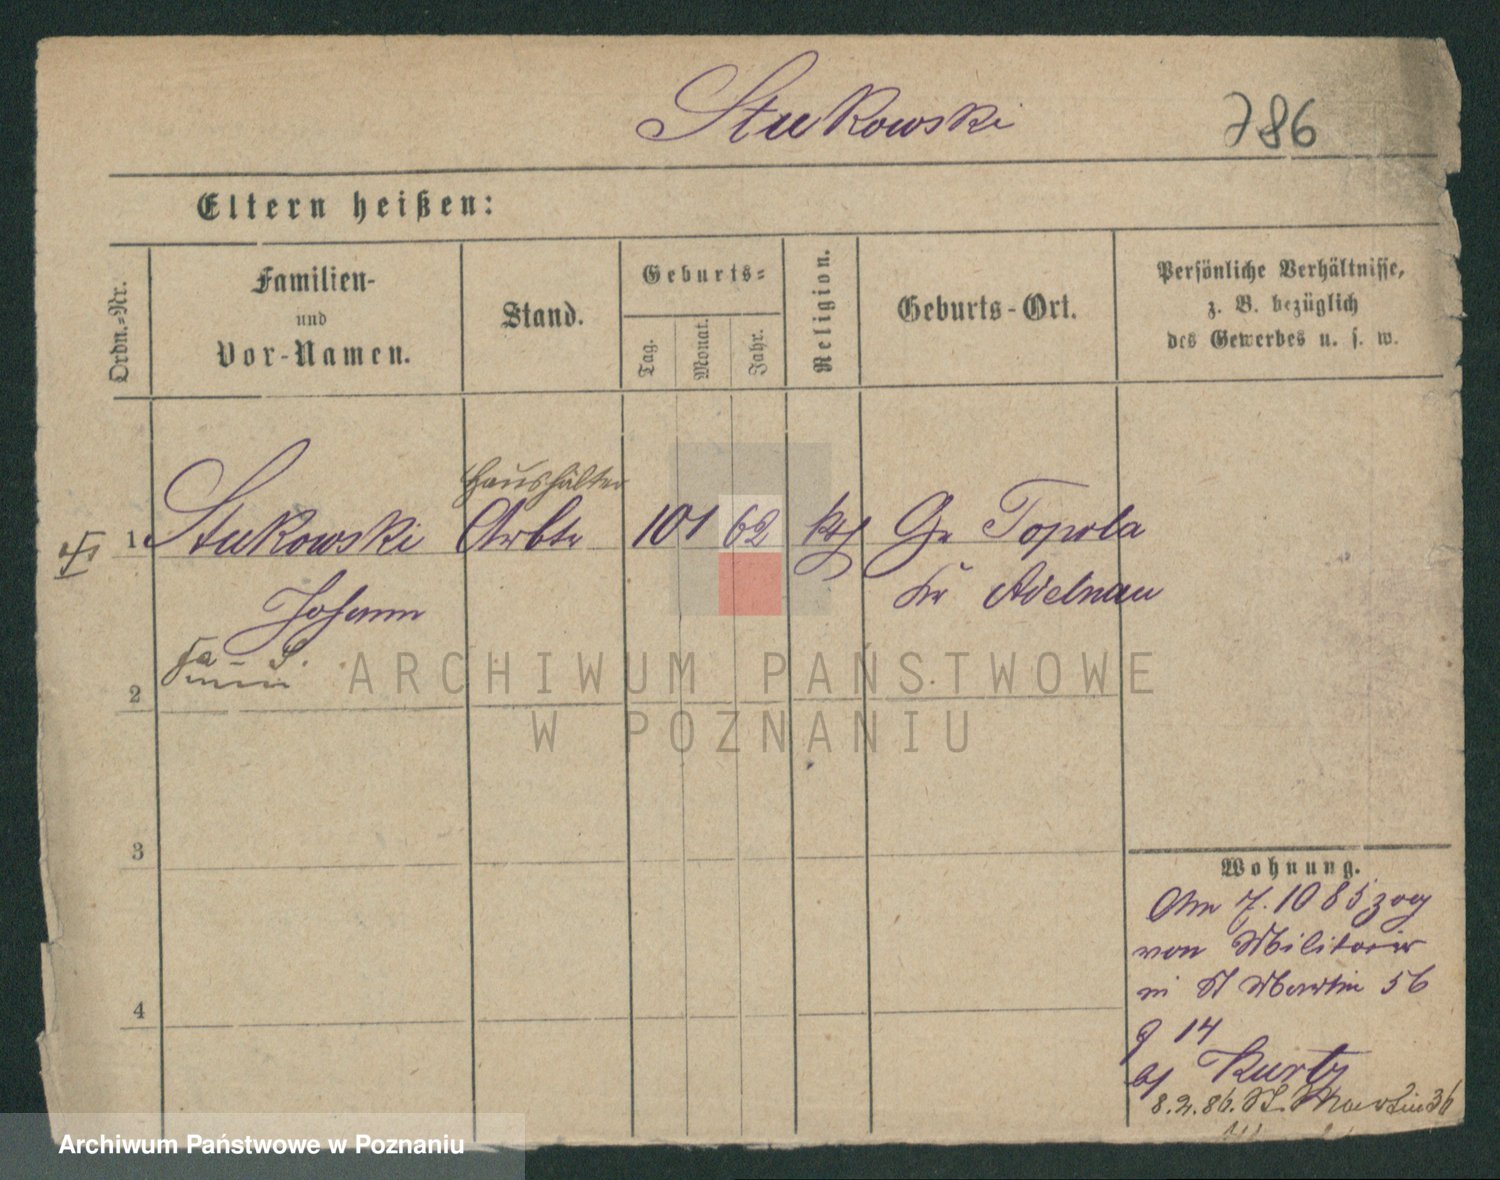 Stukowski
786
Eltern heißen:
Ordn.=Nr.
Familien-
und
Vor-Namen.
Stand.
Geburts=
Tag.
Monat.
Jahr.
Religion.
Geburts-Ort.
Persönliche Verhältnisse,
z. B. bezüglich
des Gewerbes u. s. w.
Haushälter
1 Stukowski Arbtr 10 1 62 kth Gr Topola
Johann Kr Adelnau
2
3
4
Wohnung.
Am 7. 10 85 zog
von Militair
in St Martin 56
14
Kurtz
8. 2. 86. St. Martin 36
ARCHIWUM PAŃSTWOWE
W POZNANIU
Archiwum Państwowe w Poznaniu